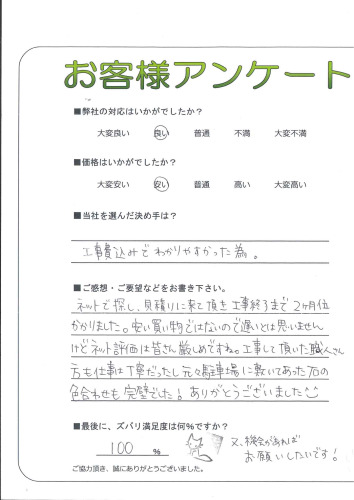 お客様アンケート
■弊社の対応はいかがでしたか？
大変良い 良い 普通 不満 大変不満
■価格はいかがでしたか？
大変安い 安い 普通 高い 大変高い
■当社を選んだ決め手は？
工事費込みでわかりやすかった為。
■ご感想・ご要望などをお書き下さい。
ネットで探し、見積りに来て頂き工事終了まで2ヶ月位
かかりました。安い買い物ではないので遅いとは思いません
けどネット評価は皆さん厳しめですね。工事して頂いた職人さん
方も仕事は丁寧だったし元々駐車場に敷いてあった石の
色合わせも完璧でした！ありがとうございました
■最後に、ズバリ満足度は何%ですか？
100 %
又、機会があれば
お願いしたいです！
ご協力頂き、誠にありがとうございました。